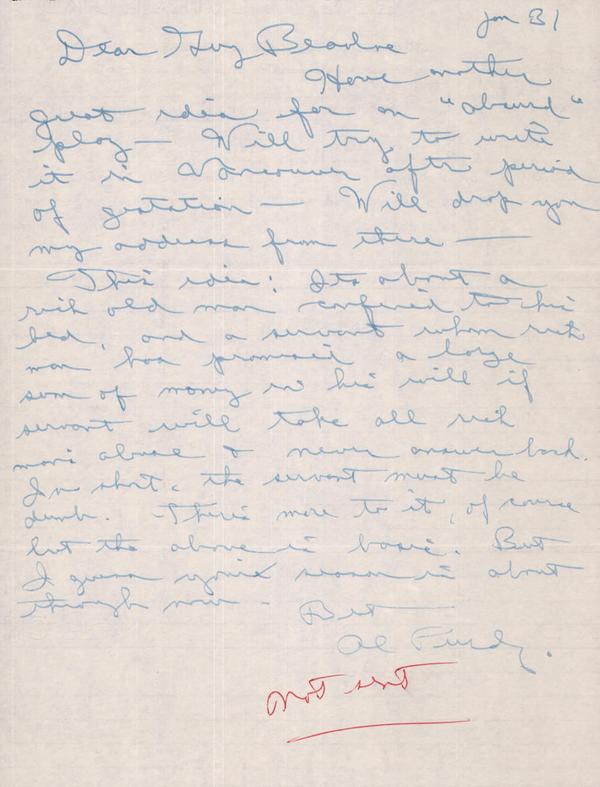 Jan 31
Dear Guy Beaulne
Have another
great idea for an "absurd"
play — Will try to write
it in Vancouver after period
of gestation — Will drop you
my address from there —
This idea: Its about a
rich old man confined to his
bed, and a servant whom rich
man has promised a large
sum of money in his will if
servant will take all rich
man's abuse & never answer back.
In short, the servant must be
dumb. There's more to it, of course
but the above is basic. But
I guess your season is about
through now -
Best
Al Purdy.
Not sent